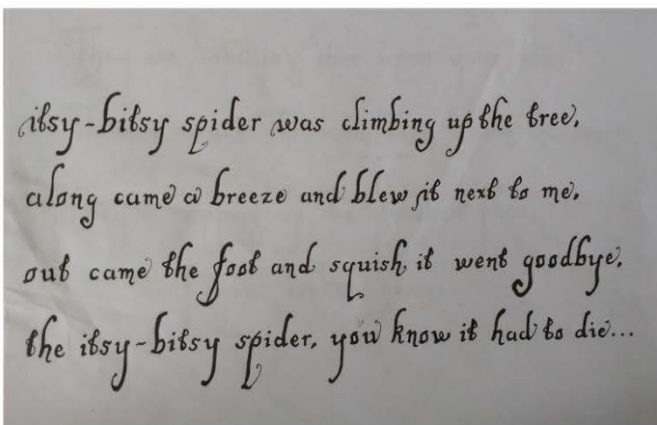 itsy-bitsy spider was climbing up the tree,
along came a breeze and blew it next to me,
out came the foot and squish, it went goodbye,
the itsy-bitsy spider, you know it had to die...